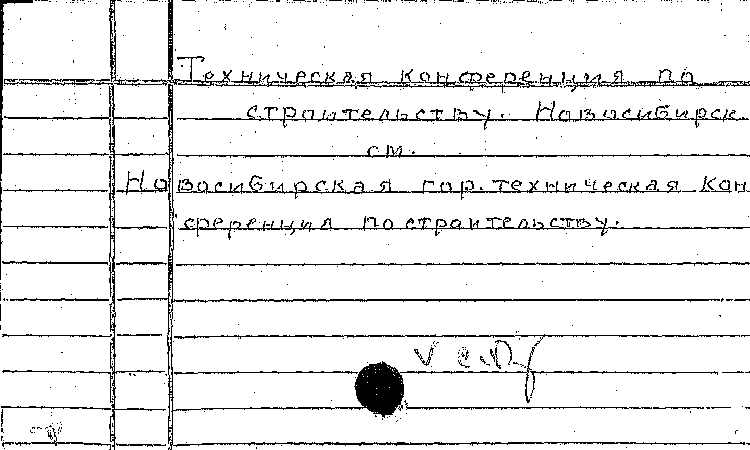 Техническая конференция по
строительству. Новосибирск
см.
Новосибирская гор. техническая кон
ференция по строительству.